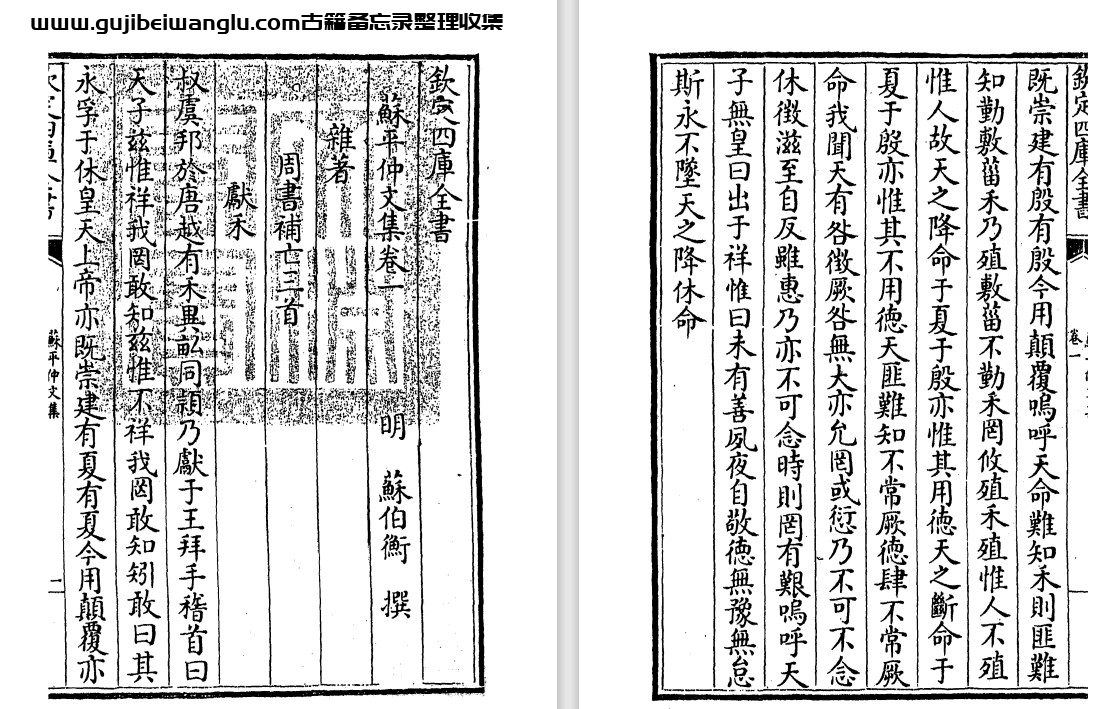 www.gujibeiwanglu.com古籍备忘录整理收集
欽定四庫全書
蘇平仲文集卷一
明 蘇伯衡 撰
雜著
周書補亡三首
獻禾
叔虞邦於唐越有禾異畝同穎乃獻于王拜手稽首曰
天子兹惟祥我罔敢知兹惟不祥我罔敢知矧敢曰其
永孚于休皇天上帝亦既崇建有夏有夏今用顛覆亦
蘇平仲文集
一
欽定四庫全書
卷一
既崇建有殷有殷今用顛覆嗚呼天命難知禾則匪難
知勤敷菑禾乃殖敷菑不勤禾罔攸殖禾殖惟人不殖
惟人故天之降命于夏于殷亦惟其用徳天之斷命于
夏于殷亦惟其不用徳天匪難知不常厥徳肆不常厥
命我聞天有咎徵厥咎無大亦允罔或愆乃不可不念
休徵滋至自反雖惠乃亦不可念時則罔有艱嗚呼天
子無皇曰出于祥惟曰未有善夙夜自敬徳無豫無怠
斯永不墜天之降休命